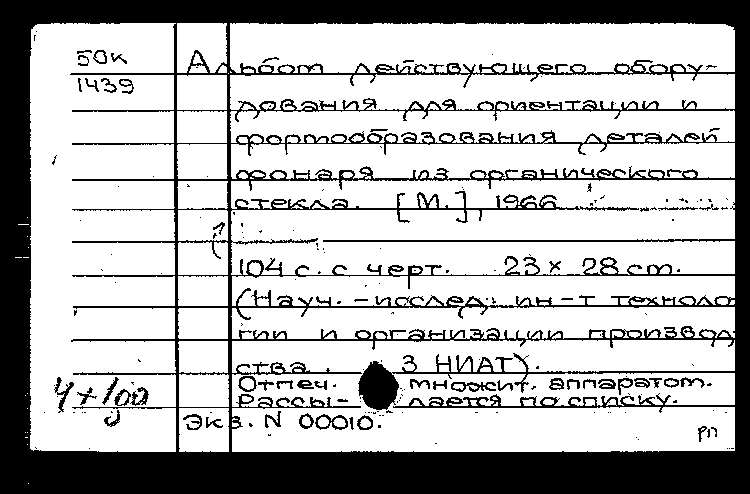 50к
1439
Альбом действующего обору-
дования для ориентации и
формообразования деталей
фонаря из органического
стекла. [М.], 1966
104 с. с черт. 23 × 28 cm.
(Науч.-исслед. ин-т техноло
гии и организации производ
ства. НИАТ).
Отпеч. множит. аппаратом.
Рассы- лается по списку.
Экз. N 00010.
рп